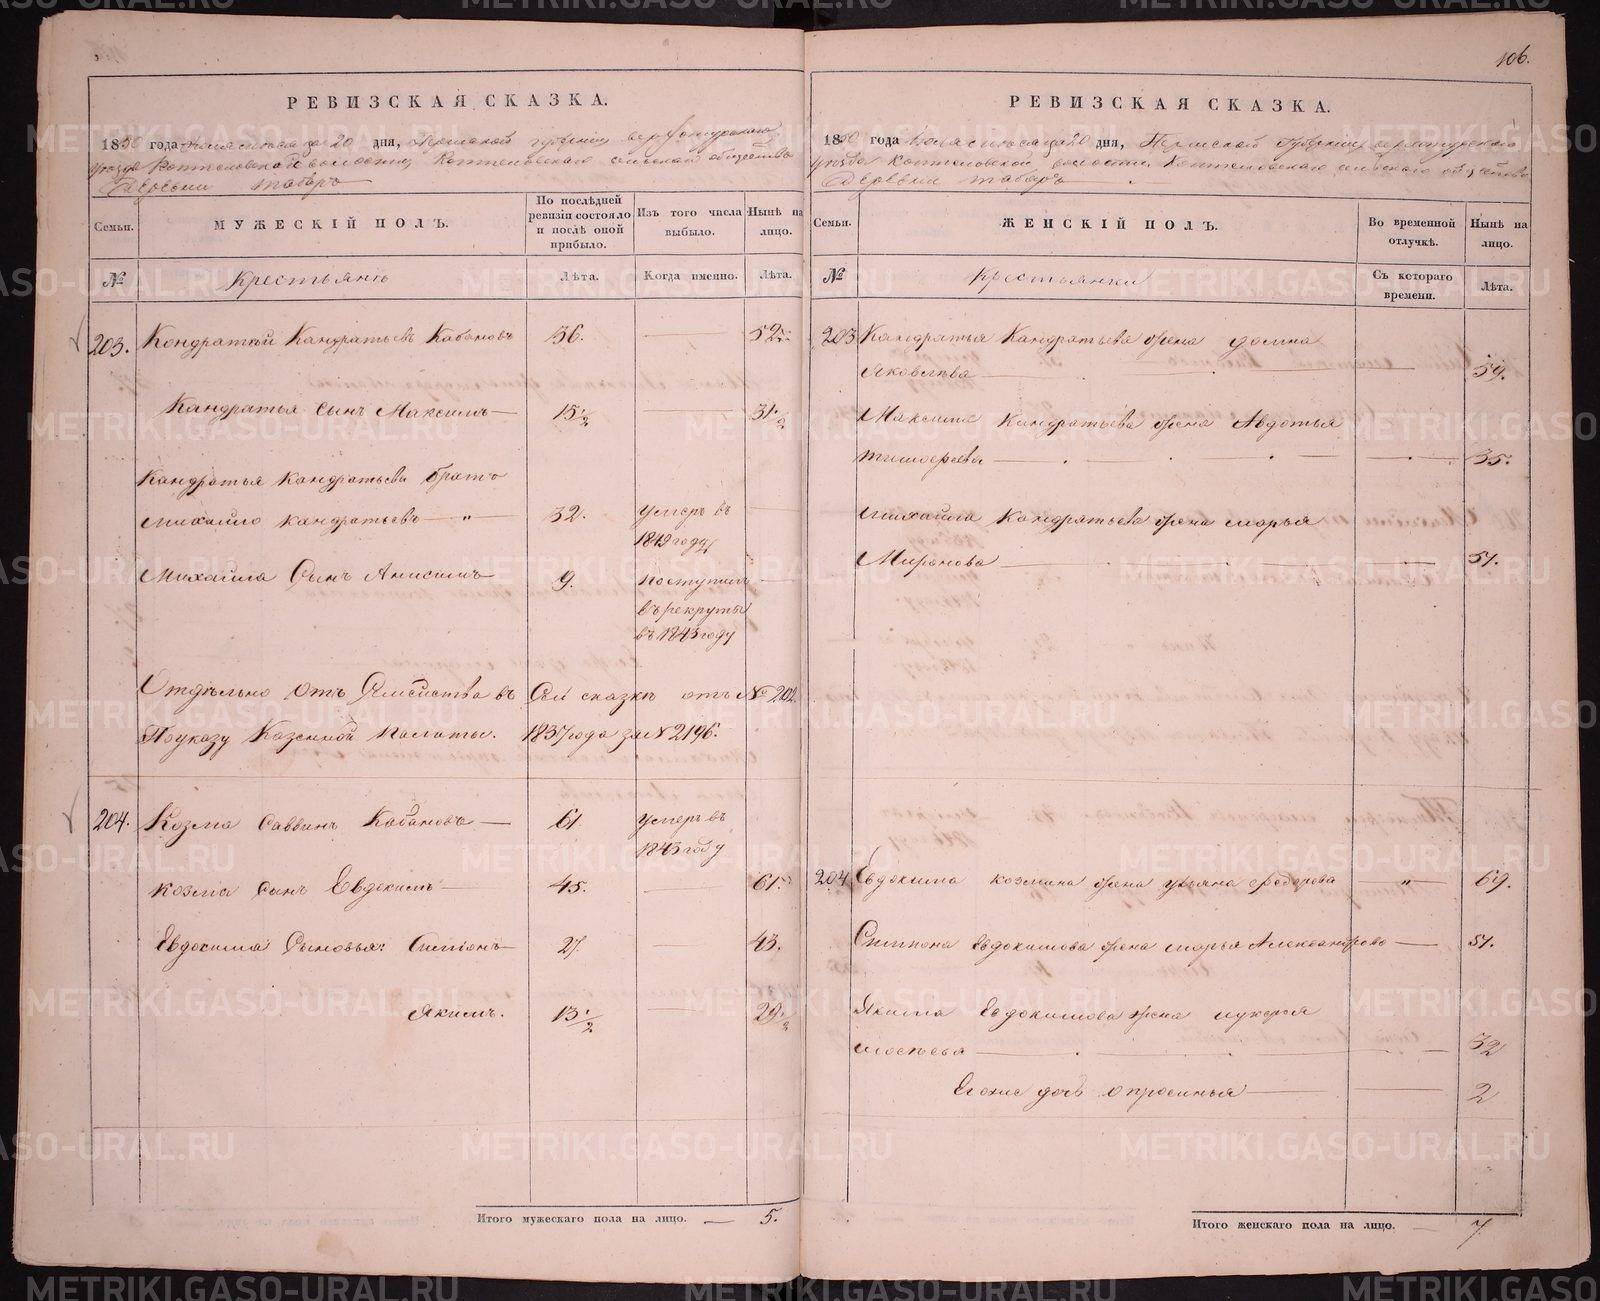 106.
РЕВИЗСКАЯ СКАЗКА.
1850 года дня, Пермской губерніи Верхотурскаго
уезда Коптеловской волости Коптеловскаго сельскаго общества
Деревни Таборъ
Семьи.
МУЖЕСКІЙ ПОЛЪ.
По послѣдней ревизіи состояло и послѣ оной прибыло.
Изъ того числа выбыло.
Нынѣ на лицо.
№
Крестьянъ
Лѣта.
Когда именно.
Лѣта.
203. Кондратий Кандратьевъ Кабановъ 36. — 52
Кандратья сынъ Максимъ — 15 1/2 — 31 1/2
Кандратья Кандратьева братъ
Михайло Кандратьевъ — " — 32. умеръ въ —
1849 году
Михайла Сынъ Анисимъ 9. поступилъ —
въ рекруты
въ 1843 году
Отдѣльно отъ Семейства въ Сей сказке отъ № 202
По указу Казенной Палаты. 1837 года за № 2196.
204. Козма Саввинъ Кабановъ — 61 умеръ въ
1843 году
Козма сынъ Евдокимъ — 45. — 61
Евдокима Сыновья: Симіонъ — 27 — 43.
Якимъ. 13 1/2 — 29 1/2
Итого мужескаго пола на лицо. — 5.
РЕВИЗСКАЯ СКАЗКА.
1850 года дня, Пермской Губерніи Верхотурскаго
уезда Коптеловской волости Коптеловскаго сельскаго общества
Деревни Таборъ
Семьи.
ЖЕНСКІЙ ПОЛЪ.
Во временной отлучкѣ.
Нынѣ на лицо.
№
Крестьянки
Съ котораго времени.
Лѣта.
203 Кандратья Кандратьева жена Домна
Яковлева — 59.
Максима Кандратьева жена Авдотья
Тимофеева — 35.
Михайла Кандратьева жена Марья
Миронова — 51.
204 Евдокима Козмина жена Ульяна Федорова — " — 69.
Симиона Евдокимова жена Марья Александрова — 51.
Якима Евдокимова жена Лукерья
— 32
Егоже дочь Опросинья — 2
Итого женскаго пола на лицо. — 7
METRIKI.GASO-URAL.RU